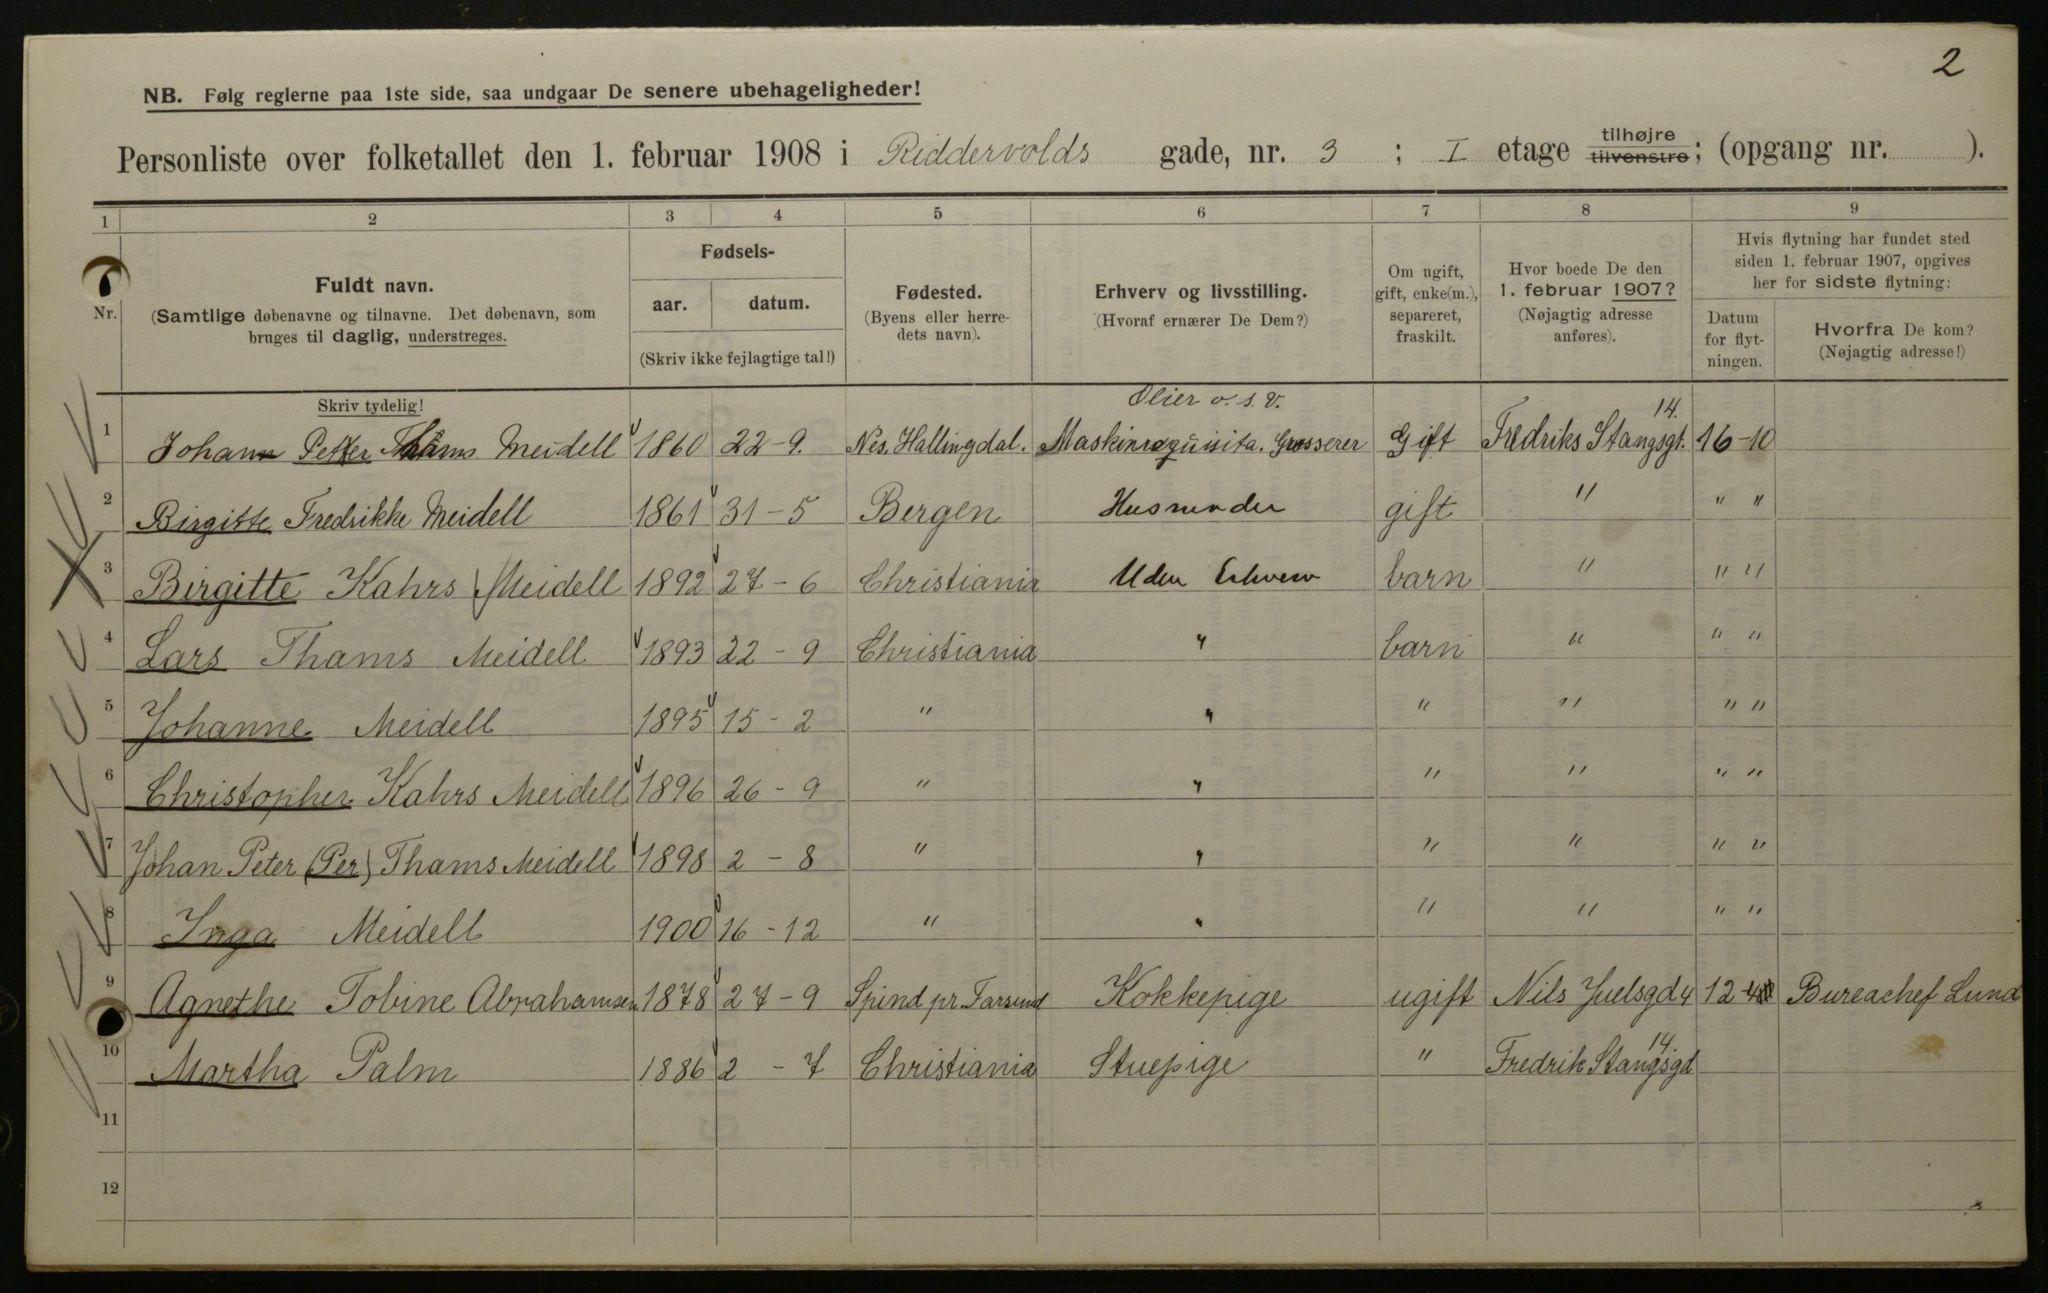 2
NB. Følg reglerne paa 1ste side, saa undgaar De senere ubehageligheder!
Personliste over folketallet den 1. februar 1908 i Riddervolds gade, nr. 3 ; I etage tilhøjre tilvenstre; (opgang nr. ).
1 2 3 4 5 6 7 8 9
Nr.
Fuldt navn.
(Samtlige døbenavne og tilnavne. Det døbenavn, som
bruges til daglig, understreges.
Skriv tydelig!
Fødsels-
aar. datum.
(Skriv ikke fejlagtige tal!)
Fødested.
(Byens eller herre-
dets navn).
Erhverv og livsstilling.
(Hvoraf ernærer De Dem?)
Om ugift,
gift, enke(m.),
separeret,
fraskilt.
Hvor boede De den
1. februar 1907?
(Nøjagtig adresse
anføres).
Hvis flytning har fundet sted
siden 1. februar 1907, opgives
her for sidste flytning:
Datum
for flyt-
ningen.
Hvorfra De kom?
(Nøjagtig adresse!)
Olier o. s. v. 14.
1 Johan Petter Thams Meidell 1860 22-9. Nes. Hallingdal. Maskinrequisita. Grosserer Gift Fredriks Stangsgt. 16-10
2 Birgitte Fredrikke Meidell 1861 31-5 Bergen Husmoder gift " " "
3 Birgitte Kahrs Meidell 1892 27-6 Christiania Uden Erhverv barn " " "
4 Lars Thams Meidell 1893 22-9 Christiania " barn " " "
5 Johanne Meidell 1895 15-2 " " " " " "
6 Christopher Kahrs Meidell 1896 26-9 " " " " " "
7 Johan Peter (Per) Thams Meidell 1898 2-8 " " " " " "
8 Inga Meidell 1900 16-12 " " " " " "
9 Agnethe Tobine Abrahamsen 1878 27-9 Spind pr. Farsund Kokkepige ugift Nils Juelsgd 4 12 Bureachef Lund
10 Martha Palm 1886 2-7 Christiania Stuepige " Fredrik Stangsgd 14.
11
12